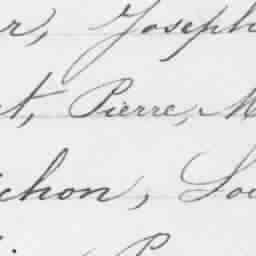 r, Joseph
t, Pierre, M
chon, Lou